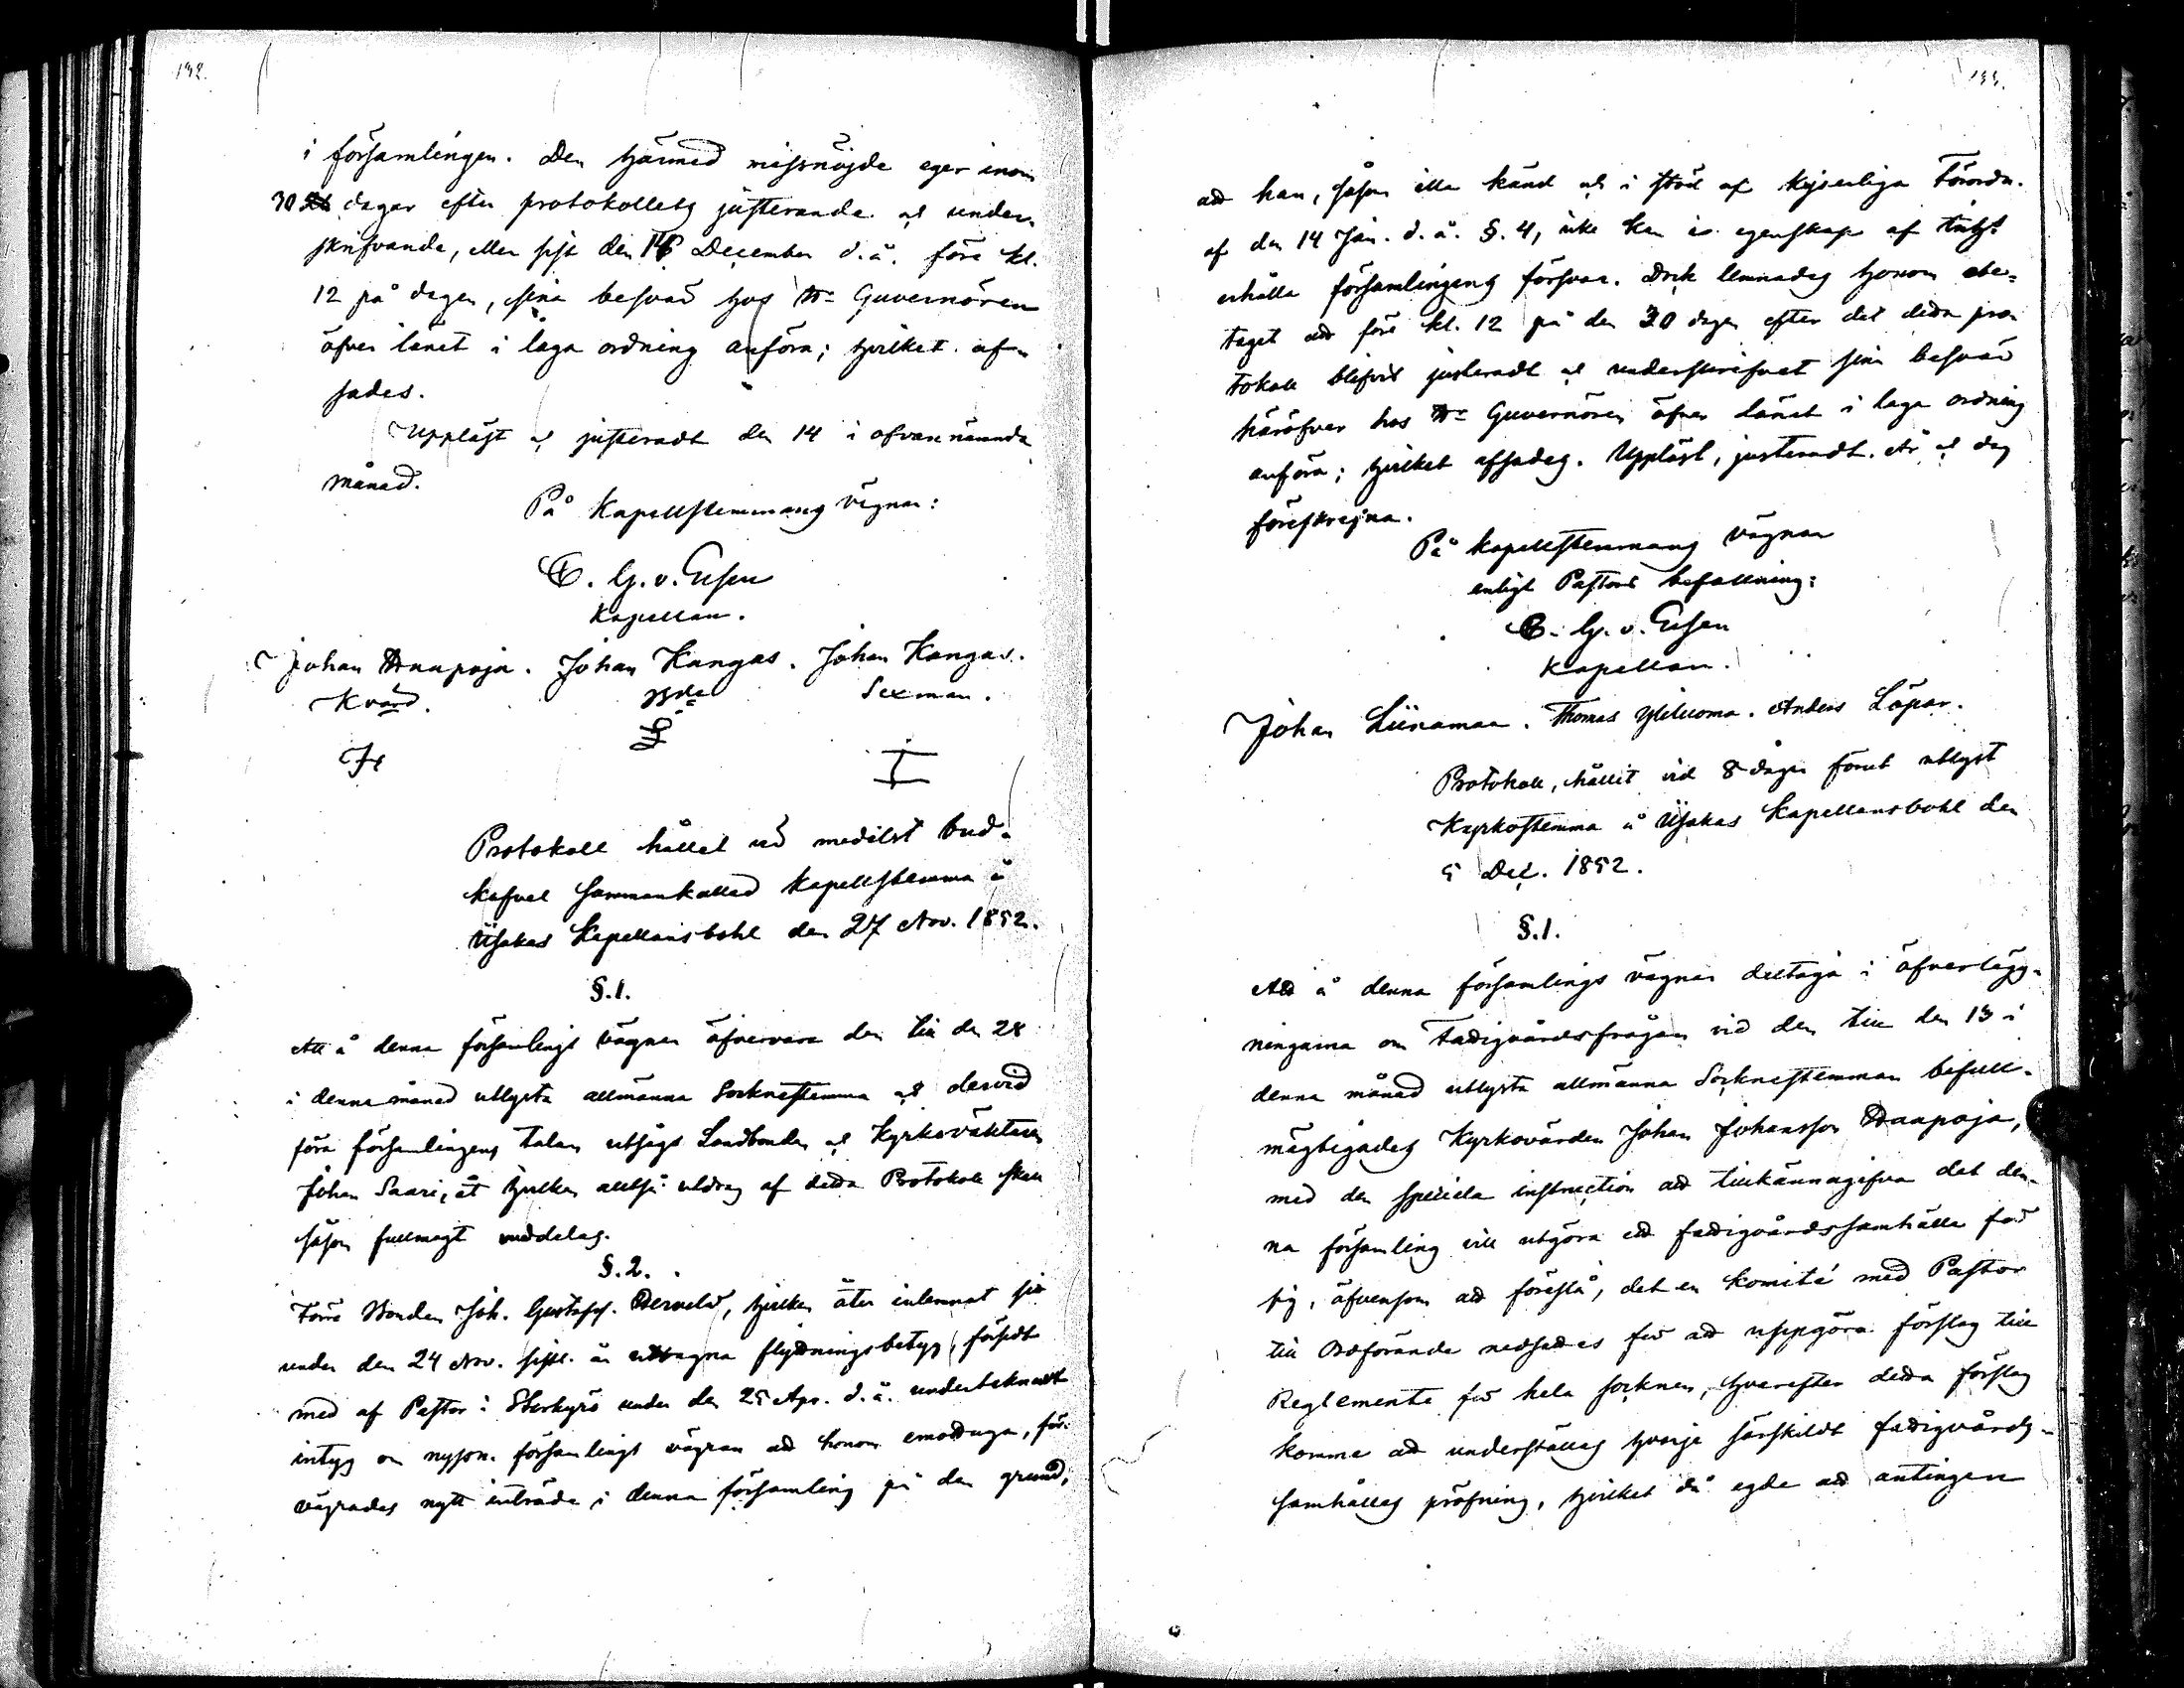 132.
i församlingen. Den härmed missnöjde eger inom
30 dagar efter protokollets justerande och under-
skrifvande, eller sist den 14 December d.å. före kl.
12 på dagen, sina besvär hos Hr Guvernören
öfver länet i laga ordning anföra; hvilket af-
sades.
Uppläst och justeradt den 14 i ofvannämnda
månad.
På Kapellstemmans vägnar:
C. G. v. Essen
Kapellan.
Johan Haapoja. Johan Kangas. Johan Kangas.
Kvärd. Bde Sexman.
Protokoll hållet vid medelst bud-
kafvel sammankallad Kapellstemma å
Ylistaro Kapellansbohl den 27 Nov. 1852.
§.1.
Att å denna församlings vägnar öfvervara den till den 28
i denna månad utlysta allmänna Sockenstemma och dervid
föra församlingens talan utsågs Landbonden och Kyrkoväktaren
Johan Saari, åt hvilken alltså utdrag af detta Protokoll skall
såsom fullmagt meddelas.
§.2.
Förre Bonden Joh. Gustafss. Perveld, hvilken åter inlemnat sitt
under den 24 Nov. sistl. år uttagna flyttningsbetyg, försedt
med af Pastor i Storkyro under den 25 Apr. d.å. undertecknadt
intyg om nyssn. församlings vägran att honom emottaga, för-
vägrades nytt inträde i denna församling på den grund,
133.
att han, såsom illa känd och i stöd af Kejserliga Förordn.
af den 14 Jan. d.å. §.4, icke kan i egenskap af
erhålla församlingens försvar. Dock lemnades honom obe-
taget att före kl. 12 på den 30 dagen efter det detta pro-
tokoll blifvit justeradt och underskrifvet sina besvär
häröfver hos Hr Guvernören öfver länet i laga ordning
anföra; hvilket afsades. Uppläst, justeradt. År och dag
föreskrefna.
På kapellstemmans vägnar
enligt Pastors befallning:
C. G. v. Essen
Kapellan.
Johan Liinamaa. Thomas Yliluoma. Anders Löpar.
Protokoll, hållit vid 8 dagar förut utlyst
Kyrkostemma å Kapellansbohl den
5 Dec. 1852.
§.1.
Att å denna församlings vägnar deltaga i öfverlägg-
ningarna om Fattigvårdsfrågan vid den till den 13 i
denna månad utlysta allmänna Sockenstemman befull-
mägtigades Kyrkovärden Johan Johansson Haapoja,
med den speciela instruction att tillkännagifva det den-
na församling vill utgöra ett fattigvårdssamhälle för
sig, äfvensom att föreslå, det en Komité med Pastor
till Ordförande nedsattes för att uppgöra förslag till
Reglemente för hela socknen, hvarefter detta förslag
komme att underställas hvarje särskildt fattigvårds-
samhälles pröfning, hvilket då egde att antingen